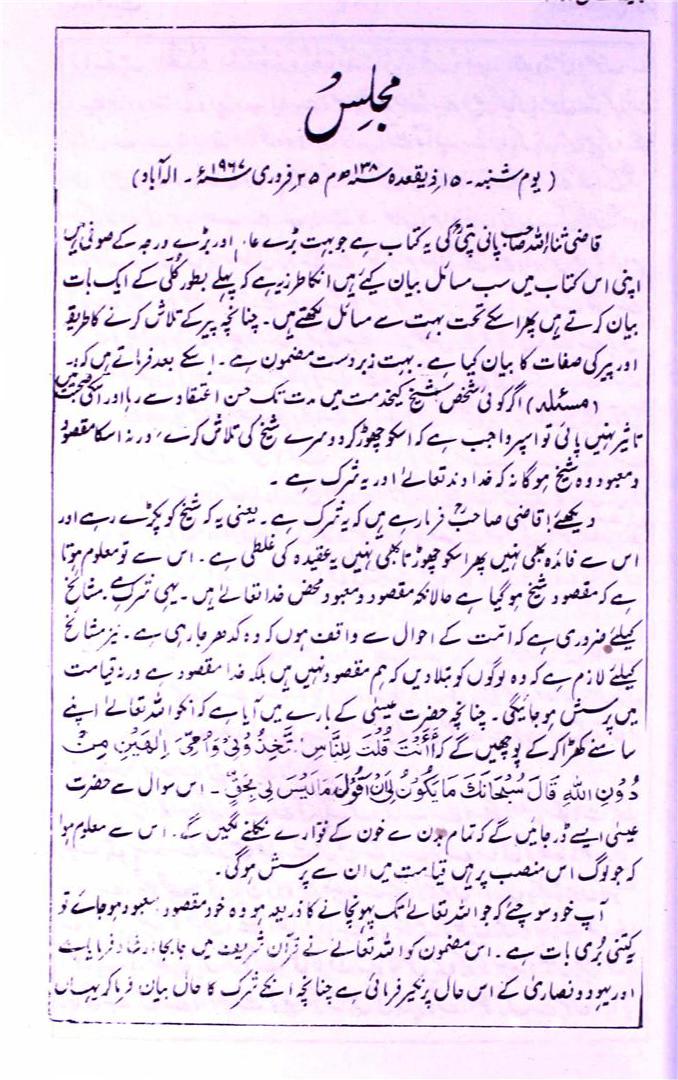 مجلس
(یوم شنبہ۔ ۱۵؍ذیقعدہ ۱۳۸ھ م ۲۵؍فروری ۱۹۶۷ء۔ الہ آباد)
قاضی ثناء اللہ صاحب پانی پتیؒ کی یہ کتاب ہے جو بہت بڑے عالم اور بڑے درجہ کے صوفی ہیں
اپنی اس کتاب میں سب مسائل بیان کیے ہیں انکا طرز یہ ہے کہ پہلے بطور کلّی کے ایک بات
بیان کرتے ہیں پھر اسکے تحت بہت سے مسائل لکھتے ہیں۔ چنانچہ پیر کے تلاش کرنے کا طریقہ
اور پیر کی صفات کا بیان کیا ہے۔ بہت زبردست مضمون ہے۔ اسکے بعد فرماتے ہیں کہ:۔
(مسئلہ) اگر کوئی شخص شیخ کیخدمت میں مدت تک حسن اعتقاد سے رہا اور اسکی صحبت میں
تاثیر نہیں پائی تو اسپر واجب ہے کہ اسکو چھوڑ کر دوسرے شیخ کی تلاش کرے، ورنہ اسکا مقصود
و معبود وہ شیخ ہوگا نہ کہ خداوند تعالےٰ اور یہ شرک ہے ۔
دیکھئے! قاضی صاحبؒ فرما رہے ہیں کہ یہ شرک ہے۔ یعنی یہ کہ شیخ کو پکڑے رہے اور
اس سے فائدہ بھی نہیں پھر اسکو چھوڑتا بھی نہیں یہ عقیدہ کی غلطی ہے۔ اس سے تو معلوم ہوتا
ہے کہ مقصود شیخ ہو گیا ہے حالانکہ مقصود و معبود محض خدا تعالےٰ ہیں۔ یہی شرک ہے۔ مشائخ
کیلئے ضروری ہے کہ امت کے احوال سے واقف ہوں کہ وہ کدھر جا رہی ہے۔ نیز مشائخ
کیلئے لازم ہے کہ وہ لوگوں کو بتلا دیں کہ ہم مقصود نہیں ہیں بلکہ خدا مقصود ہے ورنہ قیامت
میں پرسش ہو جائیگی۔ چنانچہ حضرت عیسیٰ کے بارے میں آیا ہے کہ انکو اللہ تعالےٰ اپنے
سامنے کھڑا کر کے پوچھیں گے کہ أَأَنْتَ قُلْتَ لِلنَّاسِ تَّخِذُوْنِیْ وَاُمِّیَ اِلٰهَیْنِ مِنْ
دُوْنِ اللهِ قَالَ سُبْحَانَكَ مَا یَکُوْنُ لِیْ اَنْ اَقُوْلَ مَا لَیْسَ لِیْ بِحَقٍّ۔ اس سوال سے حضرت
عیسیٰ ایسے ڈر جائیں گے کہ تمام بدن سے خون کے فوارے نکلنے لگیں گے۔ اس سے معلوم ہوا
کہ جو لوگ اس منصب پر ہیں قیامت میں ان سے پرسش ہو گی۔
آپ خود سوچئے کہ جو اللہ تعالےٰ تک پہونچانے کا ذریعہ ہو وہ خود مقصود و معبود ہو جائے تو
کیتنی بُری بات ہے۔ اس مضمون کو اللہ تعالےٰ نے قرآن شریف میں جابجا ارشاد فرمایا ہے
اور یہود و نصاریٰ کے اس حال پر نکیر فرمائی ہے چنانچہ انکے شرک کا حال بیان فرما کر یہاں